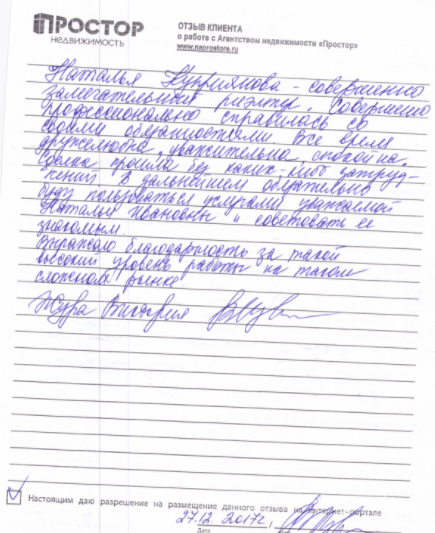 ПРОСТОР
НЕДВИЖИМОСТЬ
ОТЗЫВ КЛИЕНТА
о работе с Агентством недвижимости «Простор»
www.naprostore.ru
Наталья Нуриянова - совершенно
замечательный риэлтор. Совершенно
профессионально справилась со
своими обязанностями. Все время
дружелюбна, уважительна, спокойна.
Сделка прошла без каких-либо затруд-
нений. В дальнейшем обязательно
буду пользоваться услугами уважаемой
Натальи Ивановны и советовать ее
знакомым.
Выражаю благодарность за такой
высокий уровень работы на таком
сложном рынке
Жура Виктория
Настоящим даю разрешение на размещение данного отзыва на интернет-портале
27.12.2017г.
Дата